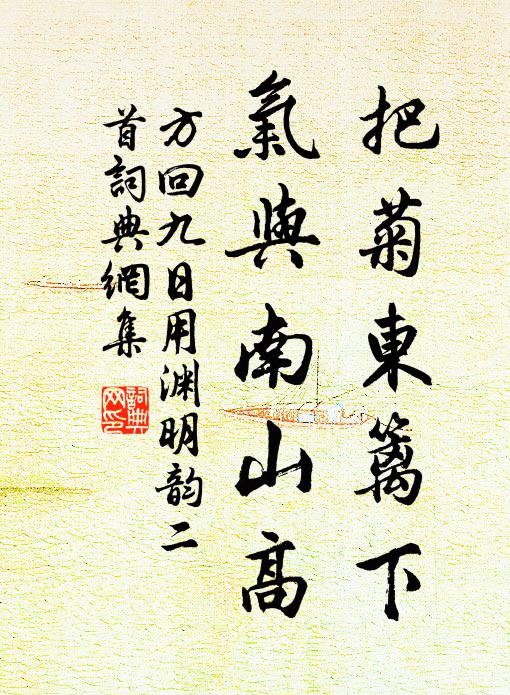 把菊東篱下
氣與南山高
方回九日用渊明韵二
首詞典網集
詞典
网印